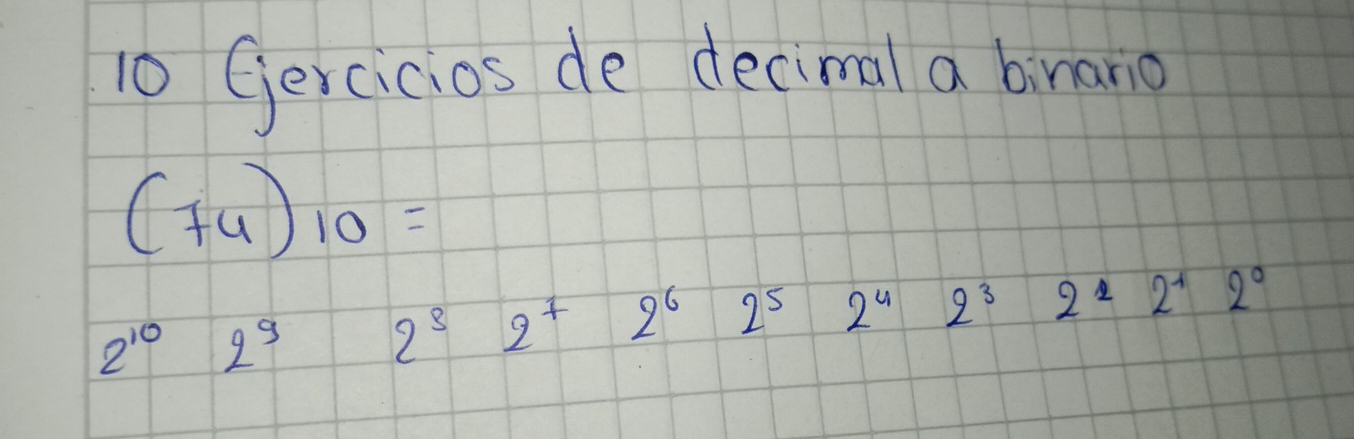 10 Ejercicios de decimal a binario
(74)10 =
2¹⁰ 2⁹ 2⁸ 2⁷ 2⁶ 2⁵ 2⁴ 2³ 2² 2¹ 2⁰